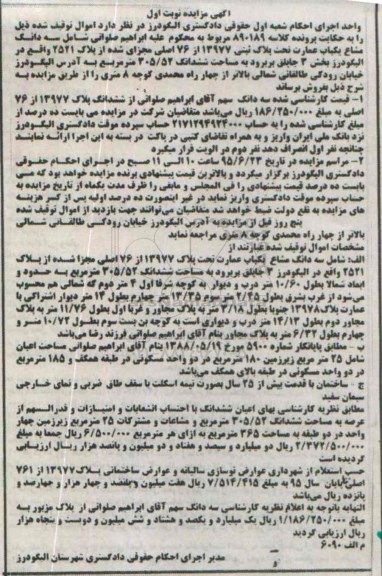 آگهی مزایده نوبت اول
واحد اجرای احکام شعبه اول حقوقی دادگستری الیگودرز در نظر دارد اموال توقیف شده ذیل
را به حکایت پرونده کلاسه 89-0189 مربوط به محکوم علیه ابراهیم صلواتی شامل سه دانگ
مشاع یکباب عمارت تحت پلاک ثبتی 13977 از 76 اصلی مجزای شده از پلاک 2521 واقع در
الیگودرز بخش 3 جاپلق بربرود به مساحت ششدانگ 305/52 مترمربع به آدرس الیگودرز
خیابان رودکی طالقانی شمالی بالاتر از چهار راه محمدی کوچه 8 متری را از طریق مزایده به
شرح ذیل بفروش برساند
1- قیمت کارشناسی شده سه دانگ سهم آقای ابراهیم صلواتی از ششدانگ پلاک 13977 از 76
اصلی به مبلغ 186/250/000 ریال می‌باشد متقاضیان شرکت در مزایده می بایست ده درصد از
مبلغ کارشناسی شده را به حساب 2171294924003 حساب سپرده موقت دادگستری الیگودرز
نزد بانک ملی ایران واریز و به همراه تقاضای کتبی در پاکت در بسته به این اجرا ارائه نمایند
چنانچه نفر اول انصراف دهد نفر دوم در الویت قرار میگیرد
2- مراسم مزایده در تاریخ 95/6/23 ساعت 10 الی 11 صبح در اجرای احکام حقوقی
دادگستری الیگودرز برگزار میگردد و بالاترین قیمت پیشنهادی برنده مزایده خواهد بود که می
بایست ده درصد قیمت پیشنهادی را فی المجلس و مابقی را ظرف مدت یکماه از تاریخ مزایده به
حساب سپرده موقت دادگستری واریز نماید در غیر اینصورت ده درصد اولیه پس از کسر هزینه
های مزایده به نفع دولت ضبط خواهد شد متقاضیان می‌توانند جهت بازدید از اموال توقیف شده
پنج روز قبل از مزایده به آدرس الیگودرز خیابان رودکی طالقانی شمالی
بالاتر از چهار راه محمدی کوچه 8 متری مراجعه نماید
مشخصات اموال توقیف شده عبارتند از
الف: شامل سه دانگ مشاع یکباب عمارت تحت پلاک 13977 از 76 اصلی مجزا شده از پلاک
2521 واقع در الیگودرز 3 جاپلق بربرود به مساحت ششدانگ 305/52 مترمربع به حدود و
ابعاد شمالا بطول 10/60 متر درب و دیوار به کوچه شرقا اول 4 متر دوم که شمالی هم محسوب
می‌شود از غرب بشرق بطول 2/45 متر سوم 13/35 متر چهارم بطول 14 متر دیوار اشتراکی با
عمارت پلاک 13978 جنوبا بطول 3/18 متر به پلاک مجاور و غربا اول بطول 11/76 به پلاک
مجاور دوم بطول 14/13 متر درب و دیواری است به کوچه بن بست سوم بطول 10/72 متر و
چهارم بطول 6/22 متر به پلاک مجاور بنام آقای ابراهیم صلواتی فرزند رضا می‌باشد
ب - مطابق پایانکار شماره 5900 مورخ 1388/05/19 بنام آقای ابراهیم صلواتی مساحت اعیان
شامل 25 متر مربع زیرزمین 180 مترمربع در دو واحد مسکونی در طبقه همکف و 185 مترمربع
در دو واحد مسکونی در طبقه بالای همکف می‌باشد
ج - ساختمان با قدمت بیش از 25 سال بصورت نیمه اسکلت با سقف طاق ضربی و نمای خارجی
سیمان سفید
مطابق نظریه کارشناسی بهای اعیان ششدانگ با احتساب انشعابات و امتیازات و قدرالسهم از
عرصه به مساحت ششدانگ 305/52 مترمربع و مشاعات و مشترکات 25 مترمربع زیرزمین چهار
واحد در دو طبقه به مساحت 365 مترمربع به ازای هر مترمربع 6/500/000 ریال جمعا به مبلغ
2/372/500/000 ریال دو میلیارد و سیصد و هفتاد و دو میلیون و پانصد هزار ریال ارزیابی
گردیده است
حسب استعلام از شهرداری عوارض نوسازی سالیانه و عوارض ساختمانی پلاک 13977 از 761
اصلی تا پایان سال 95 به مبلغ 7/514/415 ریال هفت میلیون و پانصد و چهار هزار و چهارصد و
پانزده ریال می‌باشد
النهایه باتوجه به اعلام نظریه کارشناسی سه دانگ سهم آقای ابراهیم صلواتی از پلاک مزبور به
مبلغ 1/186/250/000 ریال یک میلیارد و یکصد و هشتاد و شش میلیون و دویست و پنجاه هزار
ریال ارزیابی گردید
م الف 6090
مدیر اجرای احکام حقوقی دادگستری شهرستان الیگودرز